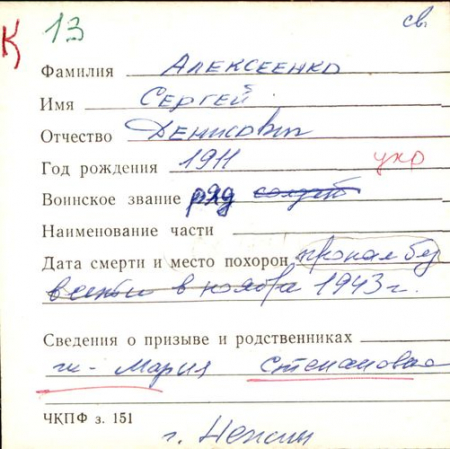 Қ 13 св.
Фамилия Алексеенко
Имя Сергей
Отчество Денисович
Год рождения 1911 укр
Воинское звание ряд солдат
Наименование части
Дата смерти и место похорон пропал без
вести в ноября 1943 г.
Сведения о призыве и родственниках
ж - Мария Степановна
ЧҚПФ з. 151
г. Нежин